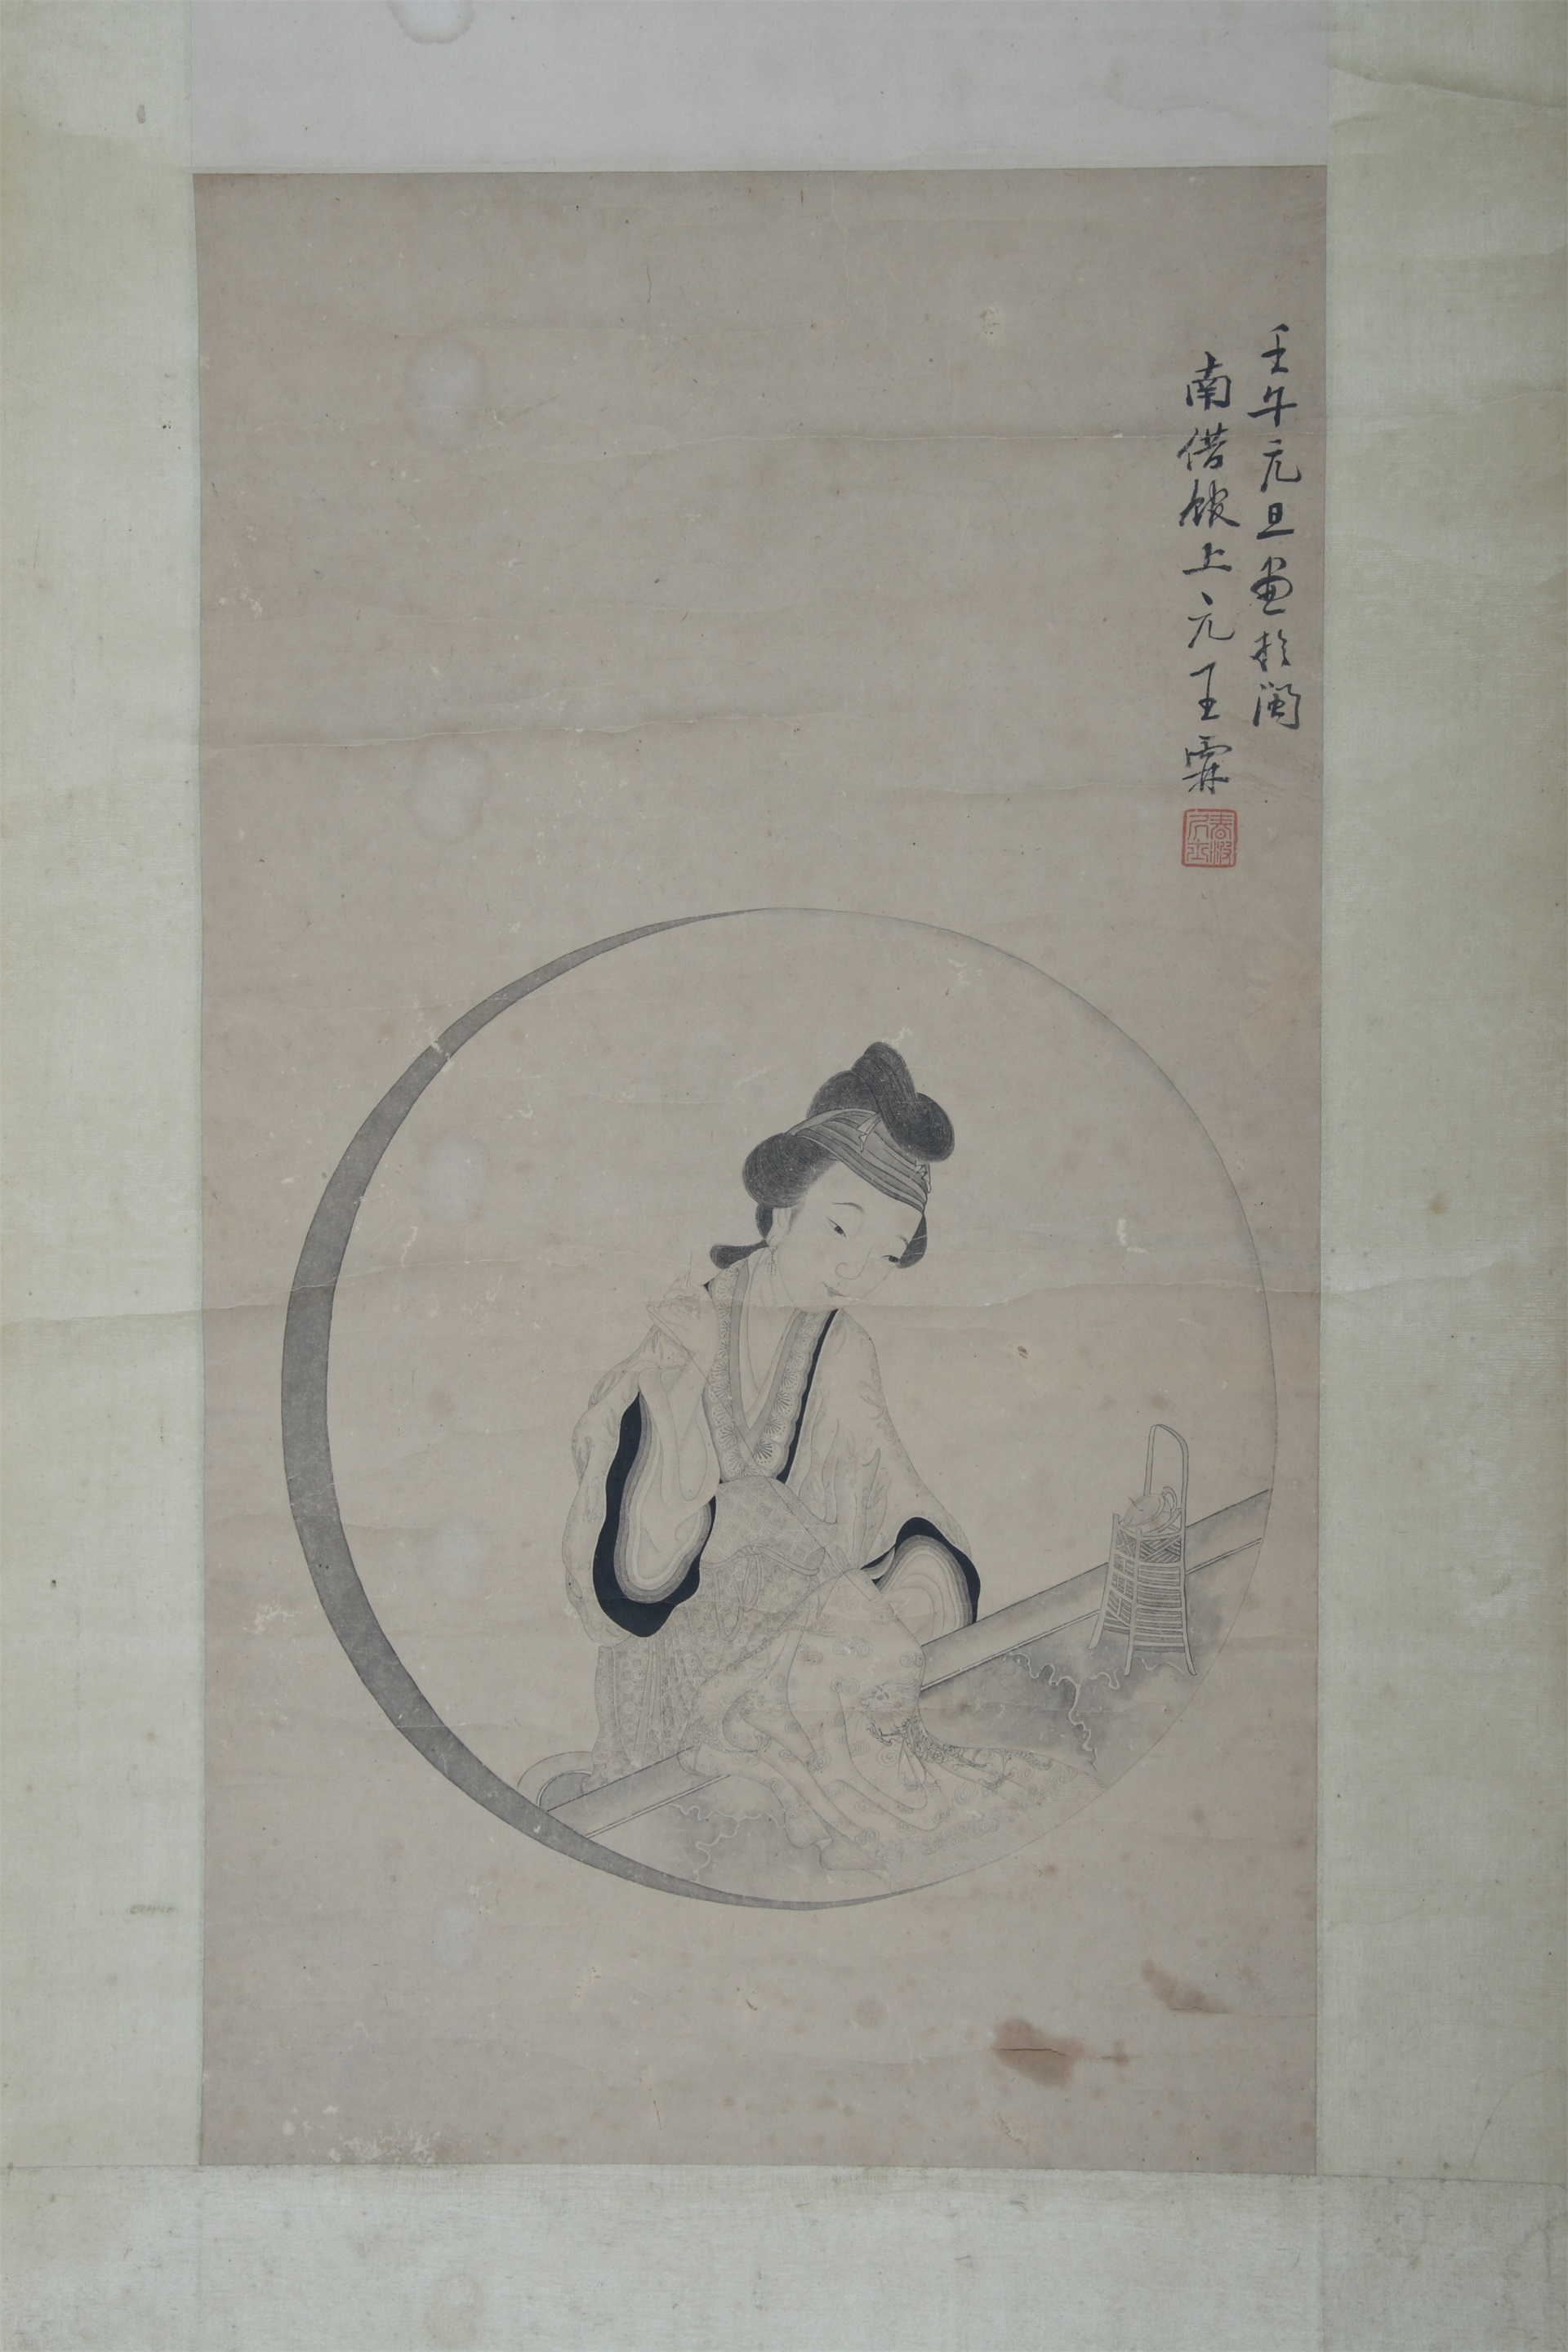 壬午元旦畫於閩
南借館上元王霖
春波